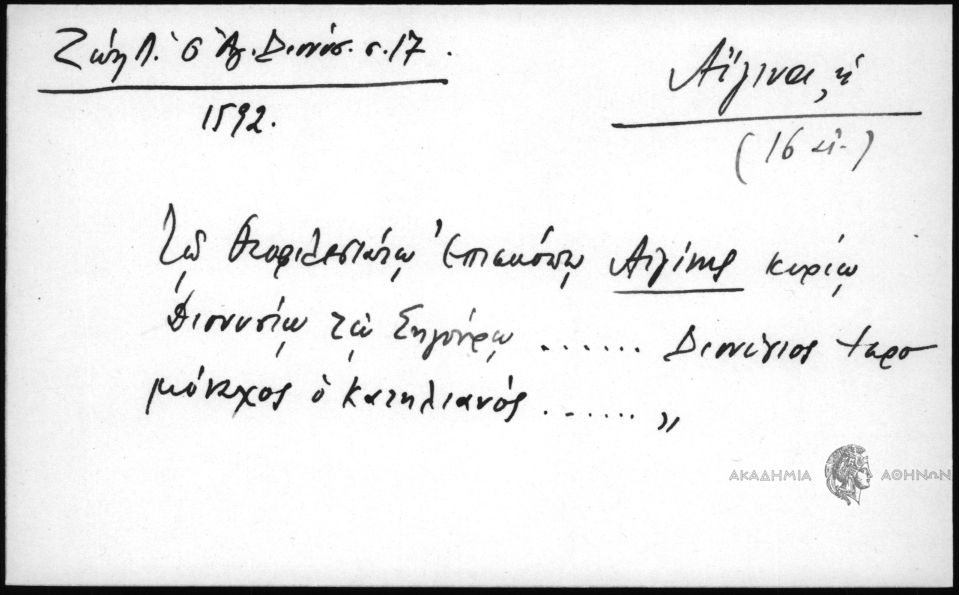 Ζώη Λ. ὁ Ἅγ. Διονύσ. σ. 17.
1592.
Αἴγινα, ἡ
(16 αἰ.)
Τῷ θεοφιλεστάτῳ Ἐπισκόπῳ Αἰγίνης κυρίῳ
Διονυσίῳ τῷ Σηγούρῳ ...... Διονύσιος ἱερο
μόναχος ὁ Κατηλιανός ...... „
ΑΚΑΔΗΜΙΑ ΑΘΗΝΩΝ